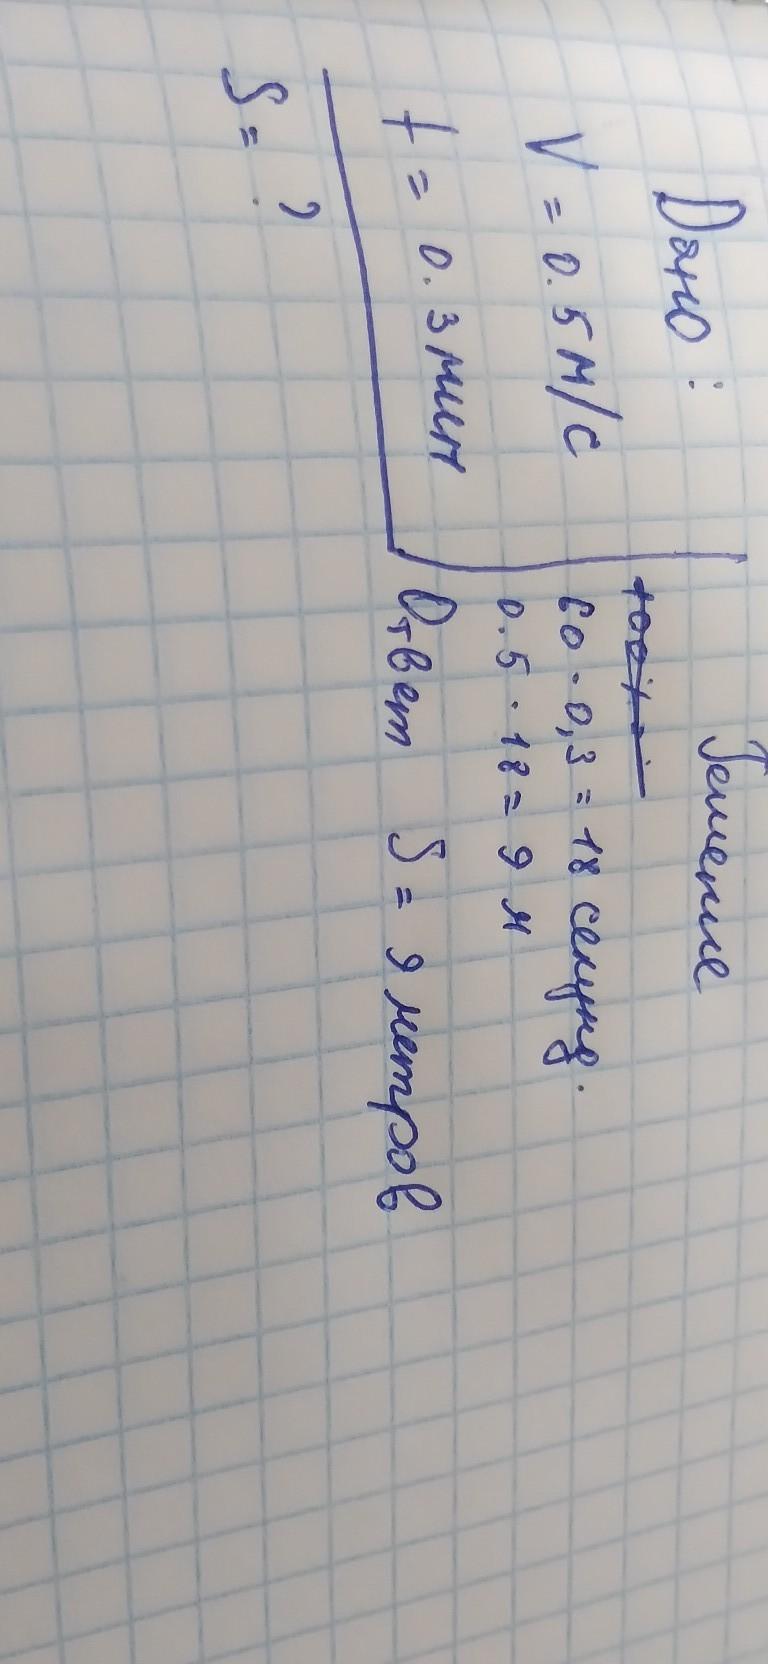 Дано:
V = 0.5 м/с
t = 0.3 мин
S = ?
Решение
60 · 0,3 = 18 секунд.
0.5 · 18 = 9 м
Ответ S = 9 метров